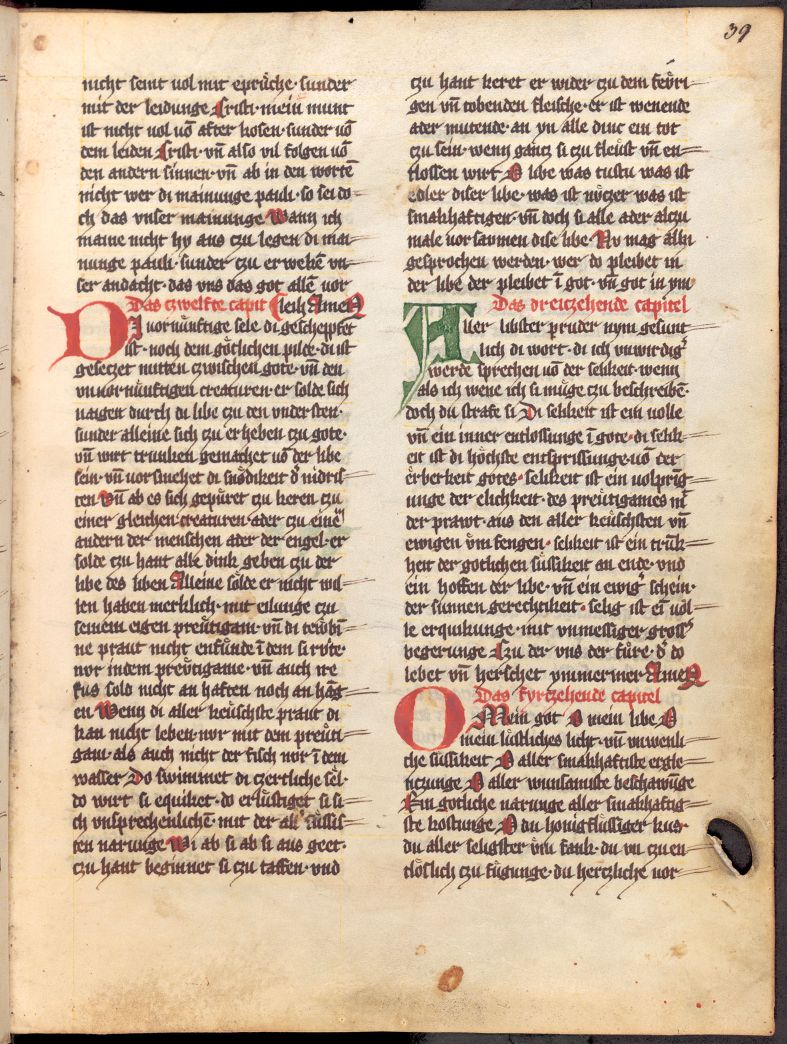 39
nicht seint vol mit sprüche · sunder
mit der leidunge Cristi · mein munt
ist nicht vol vō after kosen · sunder vō
dem leiden Cristi · vn̄ also vil folgen vō
den andern sinnen · vn̄ ab in den worten
nicht wer di mainunge pauli · so sei do
ch das vnser mainunge Wann ich
maine nicht hy aus czu legen di mai
nunge pauli · sunder czu er wekē vn
ser andacht · das vns das got allē vor
Das czwelfte capit leih Amen
DI vornünftige sele di geschepphet
ist · noch dem götlichen pilde · di ist
geseczet mitten czwischen gote · vn̄ den
vnvornünftigen creaturen · er solde sich
naigen durch di libe czu den vndersten ·
sunder alleine sich czu er heben czu gote ·
vn̄ wirt trunken gemachet vō der libe
sein · vn̄ vorsmehet di snödikeit d' nidris
ten Vn̄ ab es sich gepüret czu keren czu
einer gleichen creaturen · ader czu einē
andern der menschen ader der engel · er
solde czu hant alle dink geben czu der
libe des liben Alleine solde er nicht wil
len haben merklich · mit eilunge czu
seinem eigen preütigam · vn̄ di
ne praut nicht enfunde ī dem si rute ·
nor indem preütigame · vn̄ auch ire
fus sold nicht an haften noch an hāg
en Wenn di aller keüschste praut di
kan nicht leben nor mit dem preüti
gam · als auch nicht der fisch nor ī dem
wasser Do swimmet di czertliche sel ·
do wirt si equiket · do erlüstiget si si
ch vnsprechenlichē · mit der all süssis
ten narunge Wi ab si ab si aus geet ·
czu hant beginnet si czu taffen · vnd
czu hant keret er wider czu dem feüri
gen vn̄ tobenden fleische · er ist wenende
ader mutende · an yn alle dinc ein tot
czu sein · wenn gancz si czu fleüst vn̄ en
flossen wirt O libe was tustu was ist
edler diser libe · was ist nüczer was ist
smakhaftigen · vn̄ doch si alle ader alczu
male vor saumen dise libe · Nv mag allī
gesprochen werden · wer do pleibet in
der libe der pleibet ī got · vn̄ got in ym
Das dreiczehende capitel
Aller libster pruder nym gesunt
lich di wort · di ich vnwirdig'
werde sprechen vō der selikeit · wenn
als ich wene ich si müge czu beschreibē ·
doch du strafe si Di selikeit ist ein volle
vn̄ ein inner entlossunge ī gote · di selik
eit ist di höchste entsprissunge · vō der
erberkeit gotes · selikeit ist ein volprīg
unge der elichkeit · des preütigames mit
der prawt · aus den aller keüschsten vn̄
ewigen üm fengen · selikeit ist ein trūk
heit der gotlichen süssikeit an ende · vnd
ein hoffen der libe · vn̄ ein ewig' schein ·
der sunnen gerechtikeit · selig ist eī vol
le erquikunge · mit vnmessiger gross'
begerunge Czu der vns der füre · d' do
lebet vn̄ herschet ymmermer Amen
Das fyrczehende capitel
O Mein got O mein libe O
mein lüstliches licht · vn̄ vnwenli
che süssikeit O aller smakhaftiste ergle
nczunge O aller wunsamste beschawūge
Ein gotliche narunge aller smakhaftig
ste kostunge O du honigflüssiger kus ·
du aller seligster üm fank · du vn czu en
tlöslich czu fügunge · du herczliche vor